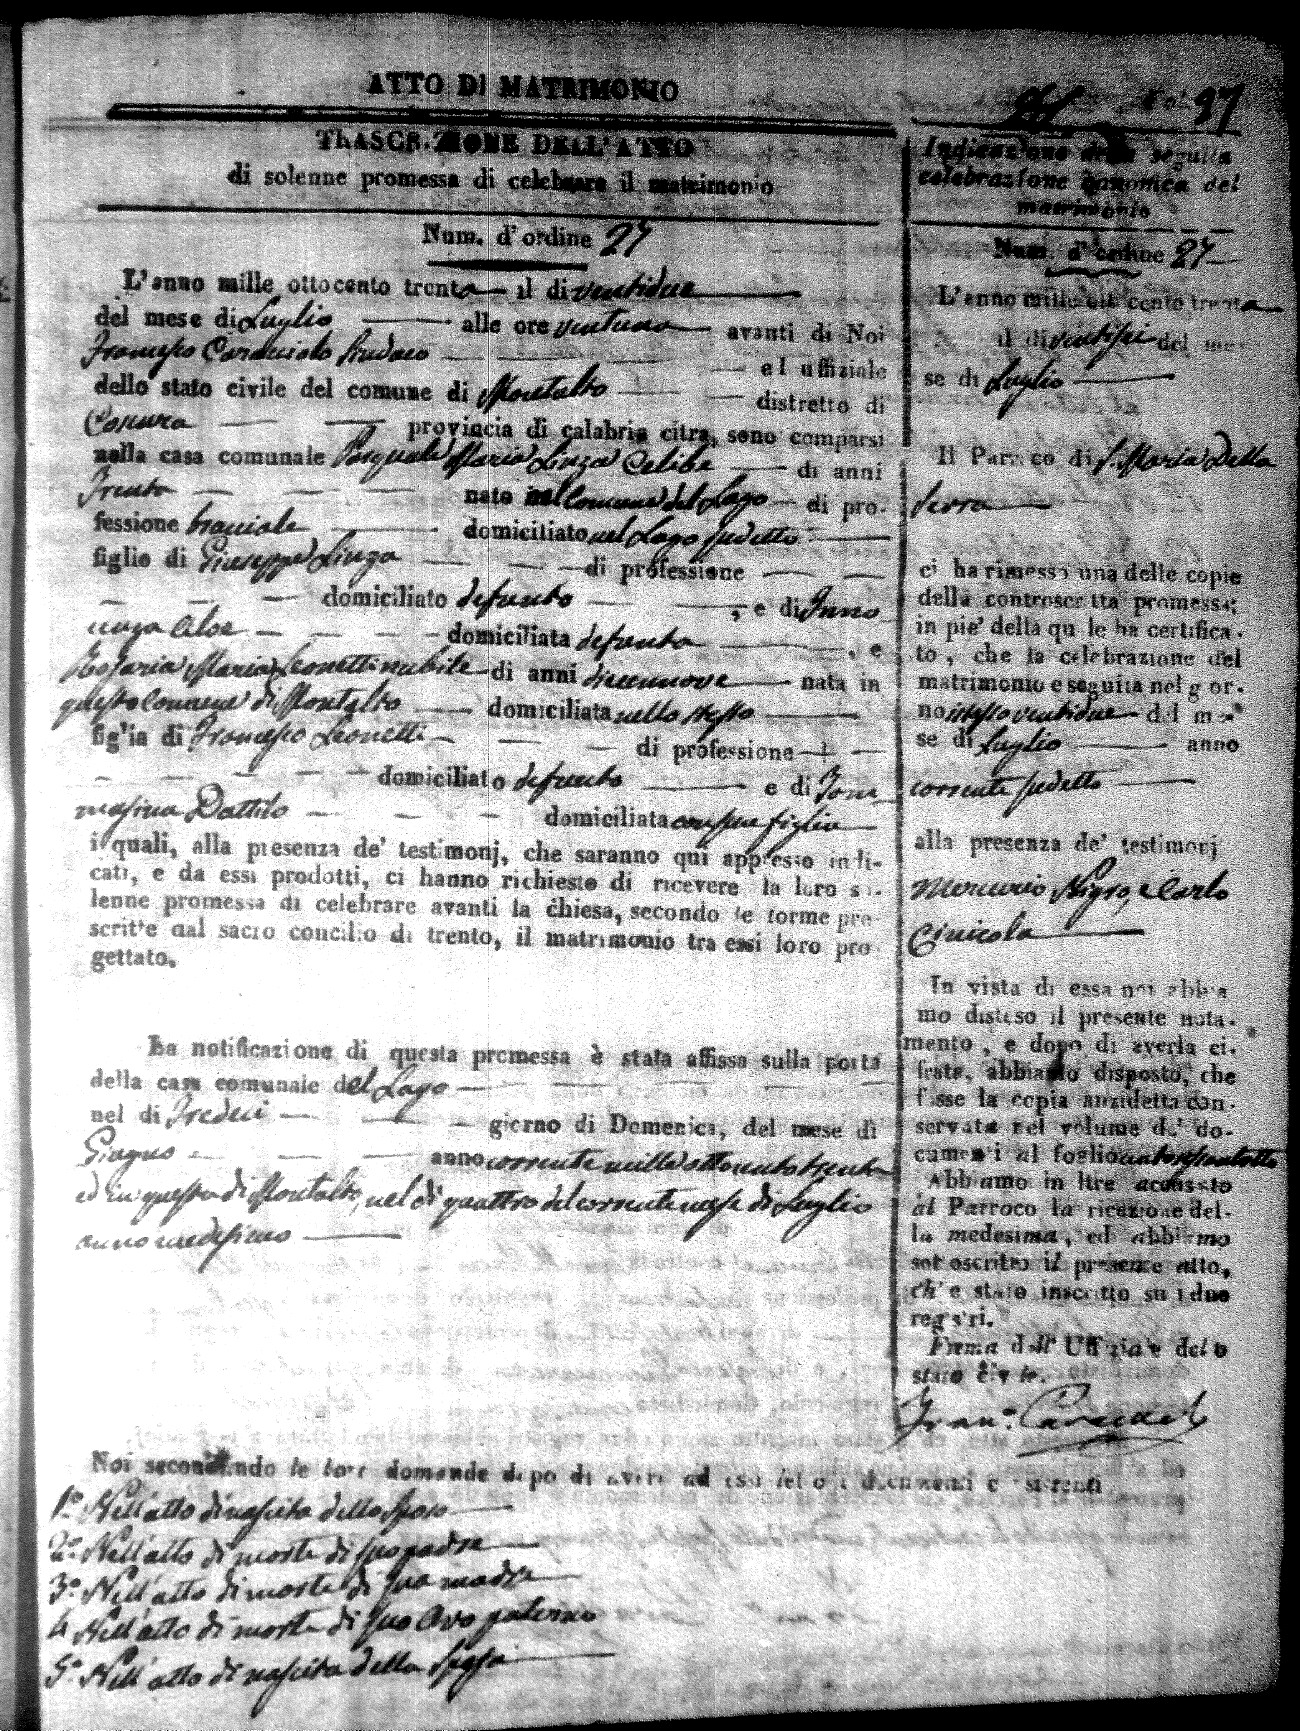 ATTO DI MATRIMONIO
27
TRASCRIZIONE DELL'ATTO
di solenne promessa di celebrare il matrimonio
Num. d'ordine 27
L'anno mille ottocento trenta il di ventidue
del mese di Luglio alle ore ventuno avanti di Noi
Francesco Caracciolo Sindaco ed uffiziale
dello stato civile del comune di Montalto distretto di
Cosenza provincia di calabria citra, sono comparsi
nella casa comunale Pasquale Maria Linza Celibe di anni
Trenta nato nel Comune del Lago di pro-
fessione bracciale domiciliato nel Lago sudetto
figlio di Giuseppe Linza di professione
domiciliato defunto, e di Anno
unza Aloe domiciliata defunta, e
Rosaria Maria Leonetti nubile di anni diecennove nata in
questo Comune di Montalto domiciliata nello stesso
figlia di Francesco Leonetti di professione
domiciliato defunto e di Tom
masina Dattilo domiciliata con sua figlia
i quali, alla presenza de' testimonj, che saranno qui appresso indi-
cati, e da essi prodotti, ci hanno richiesto di ricevere la loro so-
lenne promessa di celebrare avanti la chiesa, secondo le forme pre-
scritte dal sacro concilio di trento, il matrimonio tra essi loro pro-
gettato.
La notificazione di questa promessa è stata affissa sulla porta
della casa comunale del Lago
nel di Tredeci giorno di Domenica, del mese di
Giugno anno corrente mille ottocento trenta
ed in questa di Montalto, nel di quattro del corrente mese di Luglio
anno medesimo
Noi secondando le loro domande dopo di avere ad essi letto i documenti consistenti
1.° Nell'atto di nascita dello sposo
2.° Nell'atto di morte di suo padre
3.° Nell'atto di morte di sua madre
4 Nell'atto di morte di suo Avo paterno
5.° Nell'atto di nascita della sposa
Indicazione della seguita
celebrazione canonica del
matrimonio
Num. d'ordine 27
L'anno mille ott cento trenta
il di ventisei del me-
se di Luglio
Il Parroco di S. Maria della
Serra
ci ha rimessa una delle copie
della controscritta promessa;
in piè della quale ha certifica-
to, che la celebrazione del
matrimonio è seguita nel gior-
no istesso ventidue del me-
se di Luglio anno
corrente sudetto
alla presenza de' testimonj
Mercurio Nigro, e Carlo
Cinicola
In vista di essa noi abbia-
mo disteso il presente nota-
mento, e dopo di averla ci-
frata, abbiamo disposto, che
fosse la copia anzidetta con-
servata nel volume de' do-
cumenti al foglio
Abbiamo inoltre accusato
al Parroco la ricezione del-
la medesima, ed abbiamo
sottoscritto il presente atto,
ch'è stato inscritto su i due
registri.
Firma dell' Uffiziale dello
stato civile.
Fran.° Caracciolo